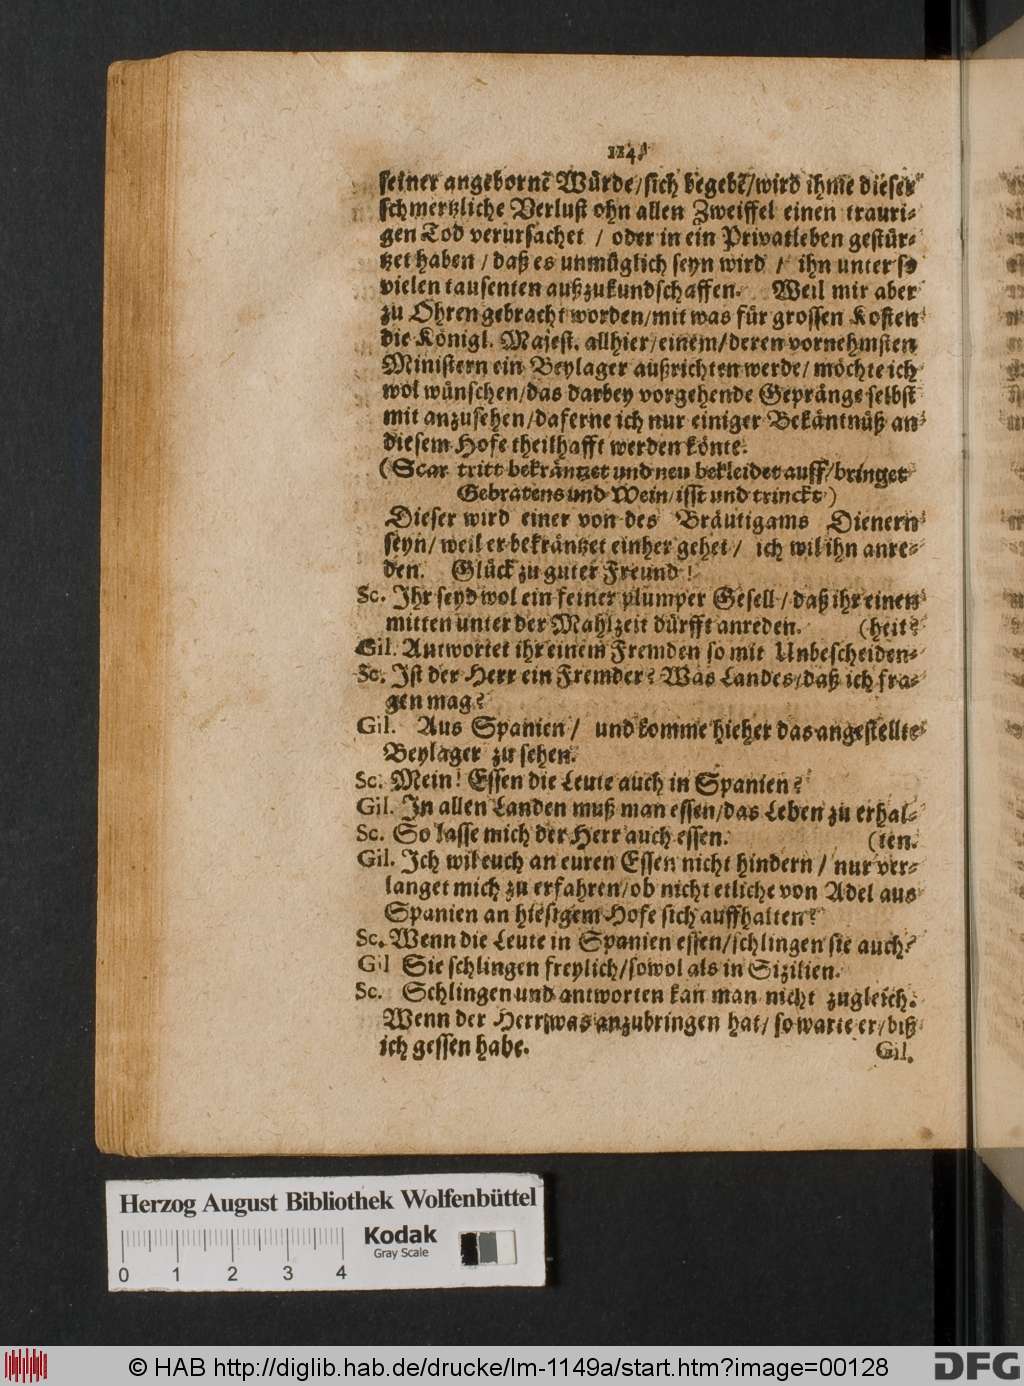 114.
seiner angebornē Würde/sich begebē/wird ihme dieser
schmertzliche Verlust ohn allen Zweiffel einen trauri-
gen Tod verursachet / oder in ein Privatleben gestür-
tzet haben / daß es unmüglich seyn wird / ihn unter so
vielen tausenten außzukundschaffen. Weil mir aber
zu Ohren gebracht worden/mit was für grossen Kosten
die Königl. Majest. allhier/einem/deren vornehmsten
Ministern ein Beylager außrichten werde/ möchte ich
wol wünschen/das darbey vorgehende Gepränge selbst
mit anzusehen/daferne ich nur einiger Bekäntnüß an
diesem Hofe theilhafft werden könte.
(Scar tritt bekräntzet und neu bekleidet auff/bringet
Gebratens und Wein/isst und trinckt)
Dieser wird einer von des Bräutigams Dienern
seyn/ weil er bekräntzet einher gehet / ich wil ihn anre-
den. Glück zu guter Freund!
Sc. Ihr seyd wol ein feiner plumper Gesell / daß ihr einen
mitten unter der Mahlzeit dürfft anreden. (heit?
Gil. Antwortet ihr einem Fremden so mit Unbescheiden-
Sc. Ist der Herr ein Fremder? Was Landes/daß ich fra-
gen mag?
Gil. Aus Spanien / und komme hieher das angestellte
Beylager zu sehen.
Sc. Mein! Essen die Leute auch in Spanien?
Gil. In allen Landen muß man essen/das Leben zu erhal-
Sc. So lasse mich der Herr auch essen. (ten.
Gil. Ich wil euch an euren Essen nicht hindern / nur ver-
langet mich zu erfahren/ob nicht etliche von Adel aus
Spanien an hiesigem Hofe sich auffhalten?
Sc. Wenn die Leute in Spanien essen/schlingen sie auch?
Gil Sie schlingen freylich/sowol als in Sizilien.
Sc. Schlingen und antworten kan man nicht zugleich.
Wenn der Herr was anzubringen hat/ so warte er/biß
ich gessen habe.
Gil.
Herzog August Bibliothek Wolfenbüttel
Kodak
Gray Scale
0 1 2 3 4
© HAB http://diglib.hab.de/drucke/lm-1149a/start.htm?image=00128
DFG